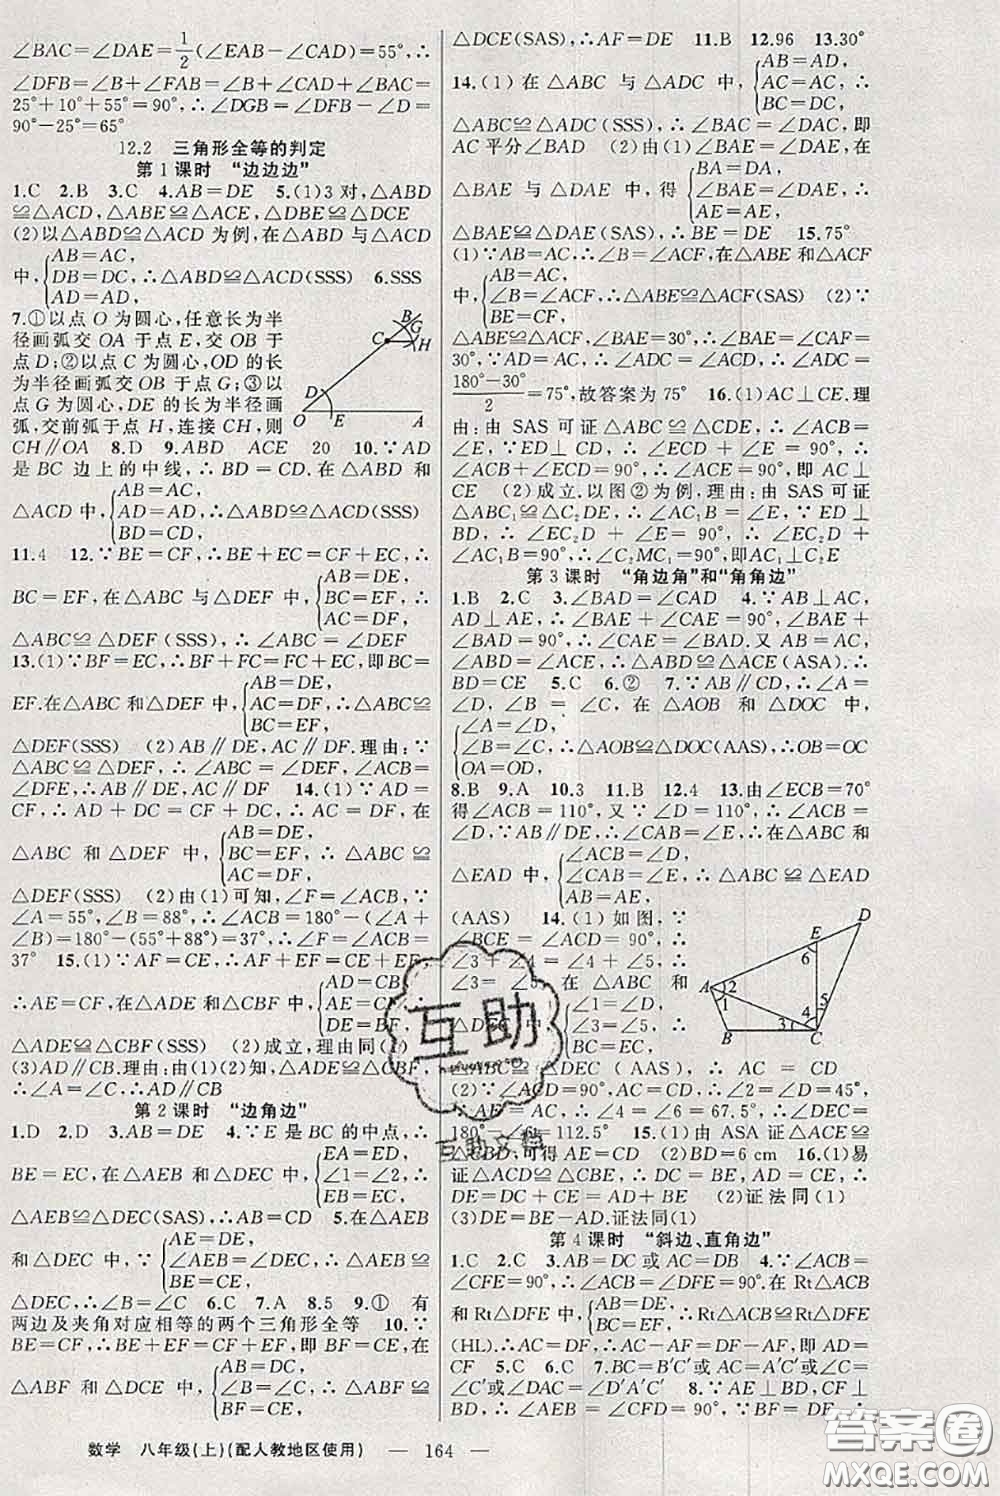 ∠BAC=∠DAE=1/2(∠EAB-∠CAD)=55°,∴
∠DFB=∠B+∠FAB=∠B+∠FAC+∠BAC=
25°+10°+55°=90°,∴∠DGB=∠DFB-∠D=
90°-25°=65°
12.2 三角形全等的判定
第1课时 “边边边”
1.C 2.B 3.C 4.AB=DE 5.(1)3对,△ABD
≌△ACD,△ABE≌△ACE,△DBE≌△DCE
(2)以△ABD≌△ACD为例,在△ABD与△ACD
中,{AB=AC,
DB=DC,
AD=AD,
∴△ABD≌△ACD(SSS) 6.SSS
7.①以点O为圆心,任意长为半
径画弧交OA于点E,交OB于
点D;②以点C为圆心,OD的长
为半径画弧交OB于点G;③以
点G为圆心,DE的长为半径画
弧,交前弧于点H,连接CH,则
B
C G H
D
O E A
CH∥OA 8.D 9.ABD ACE 20 10.∵AD
是BC边上的中线,∴BD=CD.在△ABD和
△ACD中,{AB=AC,
AD=AD,
BD=CD,
∴△ABD≌△ACD(SSS)
11.4 12.∵BE=CF,∴BE+EC=CF+EC,∴
BC=EF,在△ABC与△DEF中,{AB=DE,
BC=EF,
AC=DF,
∴
△ABC≌△DEF(SSS),∴∠ABC=∠DEF
13.(1)∵BF=EC,∴BF+FC=FC+EC,即BC=
EF.在△ABC和△DEF中,{AB=DE,
AC=DF,
BC=EF,
∴△ABC≌
△DEF(SSS) (2)AB∥DE,AC∥DF.理由:∵
△ABC≌△DEF,∴∠ABC=∠DEF,∠ACB=
∠DFE,∴AB∥DE,AC∥DF 14.(1)∵AD=
CF,∴AD+DC=CF+DC,∴AC=DF,在
△ABC和△DEF中,{AB=DE,
BC=EF,
AC=DF,
∴△ABC≌
△DEF(SSS) (2)由(1)可知,∠F=∠ACB,∵
∠A=55°,∠B=88°,∴∠ACB=180°-(∠A+
∠B)=180°-(55°+88°)=37°,∴∠F=∠ACB=
37° 15.(1)∵AF=CE,∴AF+EF=CE+EF,
∴AE=CF,在△ADE和△CBF中,{AD=CB,
AE=CF,
DE=BF,
∴
△ADE≌△CBF(SSS) (2)成立,理由同(1)
(3)AD∥CB.理由:由(1)(2)知,△ADE≌△CBF,
∴∠A=∠C,∴AD∥CB
第2课时 “边角边”
1.D 2.D 3.AB=DE 4.∵E是BC的中点,∴
BE=EC,在△ABE和△DEC中,{EA=ED,
∠AEB=∠DEC,
EB=EC,
∴△AEB≌△DEC(SAS),∴AB=CD 5.在△AEB
和△DEC中,∵{AE=DE,
∠AEB=∠DEC,
BE=CE,
∴△AEB≌
△DEC,∴∠B=∠C 6.C 7.A 8.5 9.① 有
两边及夹角对应相等的两个三角形全等 10.∵
BE=CF,∴BE+EF=CF+EF,即BF=CE,在
△ABF和△DCE中,{AB=DC,
∠B=∠C,
BF=CE,
∴△ABF≌
△DCE(SAS),∴AF=DE 11.B 12.96 13.30°
14.(1)在△ABC与△ADC中,{AB=AD,
AC=AC,
BC=DC,
∴
△ABC≌△ADC(SSS),∴∠BAC=∠DAC,即
AC平分∠BAD (2)由(1)∠BAE=∠DAE,在
△BAE与△DAE中,得{BA=DA,
∠BAE=∠DAE,
AE=AE,
∴
△BAE≌△DAE(SAS),∴BE=DE 15.75°
(1)∵AB=AC,∴∠B=∠ACF,在△ABE和△ACF
中,{AB=AC,
∠B=∠ACF,
BE=CF,
∴△ABE≌△ACF(SAS) (2)∵
△ABE≌△ACF,∠BAE=30°,∴∠BAE=∠CAF=
30°,∵AD=AC,∴∠ADC=∠ACD,∴∠ADC=
(180°-30°)/2=75°,故答案为75° 16.(1)AC⊥CE.理
由:由SAS可证△ABC≌△CDE,∴∠ACB=
∠E,∵ED⊥CD,∴∠E+∠ECD=90°,
∴∠ACB+∠ECD=90°,∴∠ACE=90°,即AC⊥
CE (2)成立.以图②为例,理由:由SAS可证
△ABC₁≌△C₂DE,∴∠AC₁B=∠E,∵ED⊥
BD,∴∠EC₂D+∠E=90°,∴∠EC₂D+
∠AC₁B=90°,∴∠C₂MC₁=90°,即AC₁⊥C₂E
第3课时 “角边角”和“角角边”
1.B 2.C 3.∠BAD=∠CAD 4.∵AB⊥AC,
AD⊥AE,∴∠BAE+∠CAE=90°,∠BAE+
∠BAD=90°,∴∠CAE=∠BAD.又AB=AC,
∠ABD=∠ACE,∴△ABD≌△ACE(ASA).∴
BD=CE 5.C 6.② 7.∵AB∥CD,∴∠A=
∠D,∠B=∠C,在△AOB和△DOC中,
{∠A=∠D,
∠B=∠C,
OA=OD,
∴△AOB≌△DOC(AAS),∴OB=OC
8.B 9.A 10.3 11.B 12.4 13.由∠ECB=70°
得∠ACB=110°,又∵∠D=110°,∴∠ACB=
∠D,∵AB∥DE,∴∠CAB=∠E,∴在△ABC和
△EAD中,{∠ACB=∠D,
∠CAB=∠E,
AB=AE,
∴△ABC≌△EAD
(AAS) 14.(1)如图,∵
∠BCE=∠ACD=90°,∴
∠3+∠4=∠4+∠5,∴
∠3=∠5,在△ABC和
△DEC中,{∠1=∠D,
∠3=∠5,
BC=EC,
∴
D
E
6
A 1 2
B 3 4 5 C
△ABC≌△DEC(AAS),∴AC=CD
(2)∵∠ACD=90°,AC=CD,∴∠2=∠D=45°,
∵AE=AC,∴∠4=∠6=67.5°,∴∠DEC=
180°-∠6=112.5° 15.(1)由ASA证△ACE≌
△CBD,可得AE=CD (2)BD=6 cm 16.(1)易
证△ACD≌△CBE,∴DC=BE,AD=CE,∴
DE=DC+CE=AD+BE (2)证法同(1)
(3)DE=BE-AD.证法同(1)
第4课时 “斜边、直角边”
1.C 2.C 3.AB=DC或AC=DB 4.∵∠ACB=
∠CFE=90°,∴∠ACB=∠DFE=90°.在Rt△ACB
和Rt△DFE中,{AB=DE,
BC=EF,
∴Rt△ACB≌Rt△DFE
(HL).∴AC=DF,∴AC-AF=DF-AF,即AD=
CF 5.C 6.C 7.BC=B′C′或AC=A′C′或∠C=
∠C′或∠DAC=∠D′A′C′ 8.∵AE⊥BD,CF⊥
BD,∴∠AEB=∠CFD=90°,∵BF=DE,∴BF+
互助
互助文档
数学 八年级(上)(配人教地区使用) — 164 —
答案圈
MXQE.COM